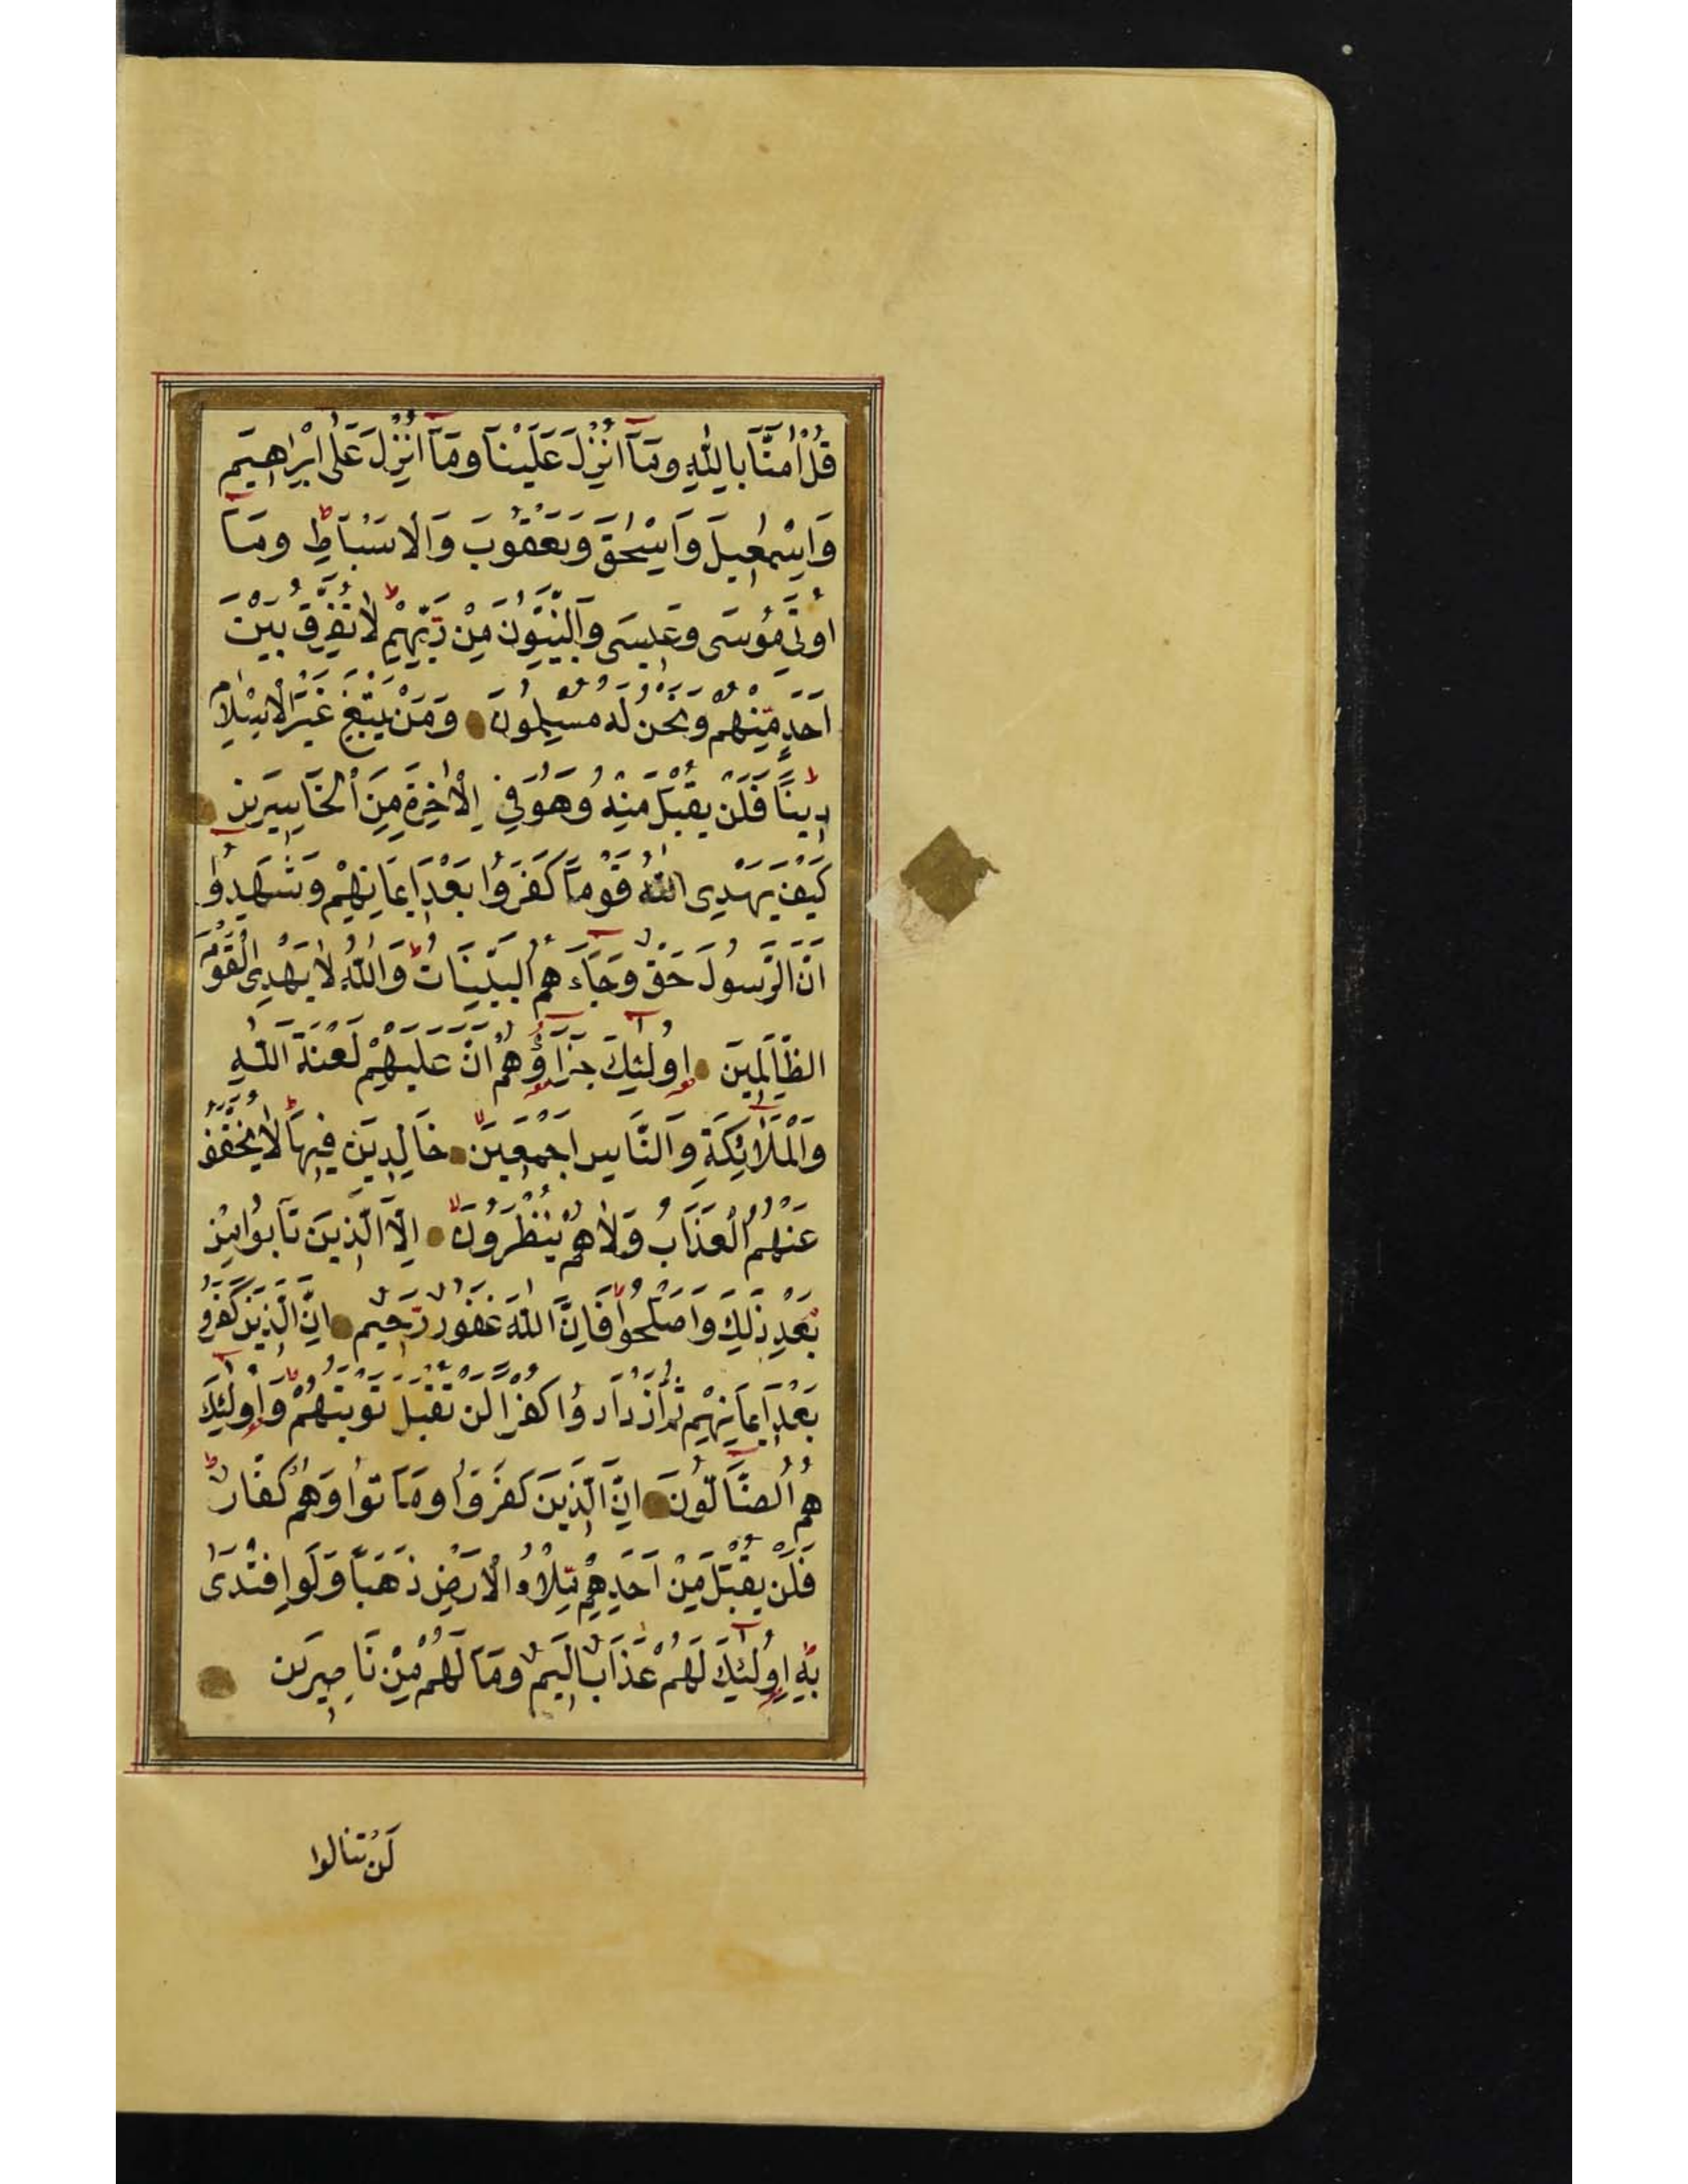 قُلْ اٰمَنَّا بِاللّٰهِ وَمَآ اُنْزِلَ عَلَيْنَا وَمَآ اُنْزِلَ عَلٰى اِبْرٰاهِيمَ
وَاِسْمٰعِيلَ وَاِسْحٰقَ وَيَعْقُوبَ وَالْاَسْبَاطِ وَمَآ
اُوتِيَ مُوسَى وَعِيسَى وَالنَّبِيُّونَ مِنْ رَبِّهِمْ لَا نُفَرِّقُ بَيْنَ
اَحَدٍ مِنْهُمْ وَنَحْنُ لَهُ مُسْلِمُونَ وَمَنْ يَبْتَغِ غَيْرَ الْاِسْلَامِ
دِينًا فَلَنْ يُقْبَلَ مِنْهُ وَهُوَ فِي الْاٰخِرَةِ مِنَ الْخَاسِرِينَ
كَيْفَ يَهْدِى اللّٰهُ قَوْمًا كَفَرُوا بَعْدَ اِيمَانِهِمْ وَشَهِدُوا
اَنَّ الرَّسُولَ حَقٌّ وَجَآءَهُمُ الْبَيِّنَاتُ وَاللّٰهُ لَا يَهْدِى الْقَوْمَ
الظَّالِمِينَ اُولٰٓئِكَ جَزَآؤُهُمْ اَنَّ عَلَيْهِمْ لَعْنَةَ اللّٰهِ
وَالْمَلٰٓائِكَةِ وَالنَّاسِ اَجْمَعِينَ خَالِدِينَ فِيهَا لَا يُخَفَّفُ
عَنْهُمُ الْعَذَابُ وَلَا هُمْ يُنْظَرُونَ اِلَّا الَّذِينَ تَابُوا مِنْ
بَعْدِ ذٰلِكَ وَاَصْلَحُوا فَاِنَّ اللّٰهَ غَفُورٌ رَحِيمٌ اِنَّ الَّذِينَ كَفَرُو
بَعْدَ اِيمَانِهِمْ ثُمَّ ازْدَادُوا كُفْرًا لَنْ تُقْبَلَ تَوْبَتُهُمْ وَاُولٰٓئِكَ
هُمُ الضَّآلُّونَ اِنَّ الَّذِينَ كَفَرُوا وَمَاتُوا وَهُمْ كُفَّارٌ
فَلَنْ يُقْبَلَ مِنْ اَحَدِهِمْ مِلْاُءُ الْاَرْضِ ذَهَبًا وَلَوِ افْتَدٰى
بِهِ اُولٰٓئِكَ لَهُمْ عَذَابٌ اَلِيمٌ وَمَا لَهُمْ مِنْ نَاصِرِينَ
لَنْ تَنَالُوا